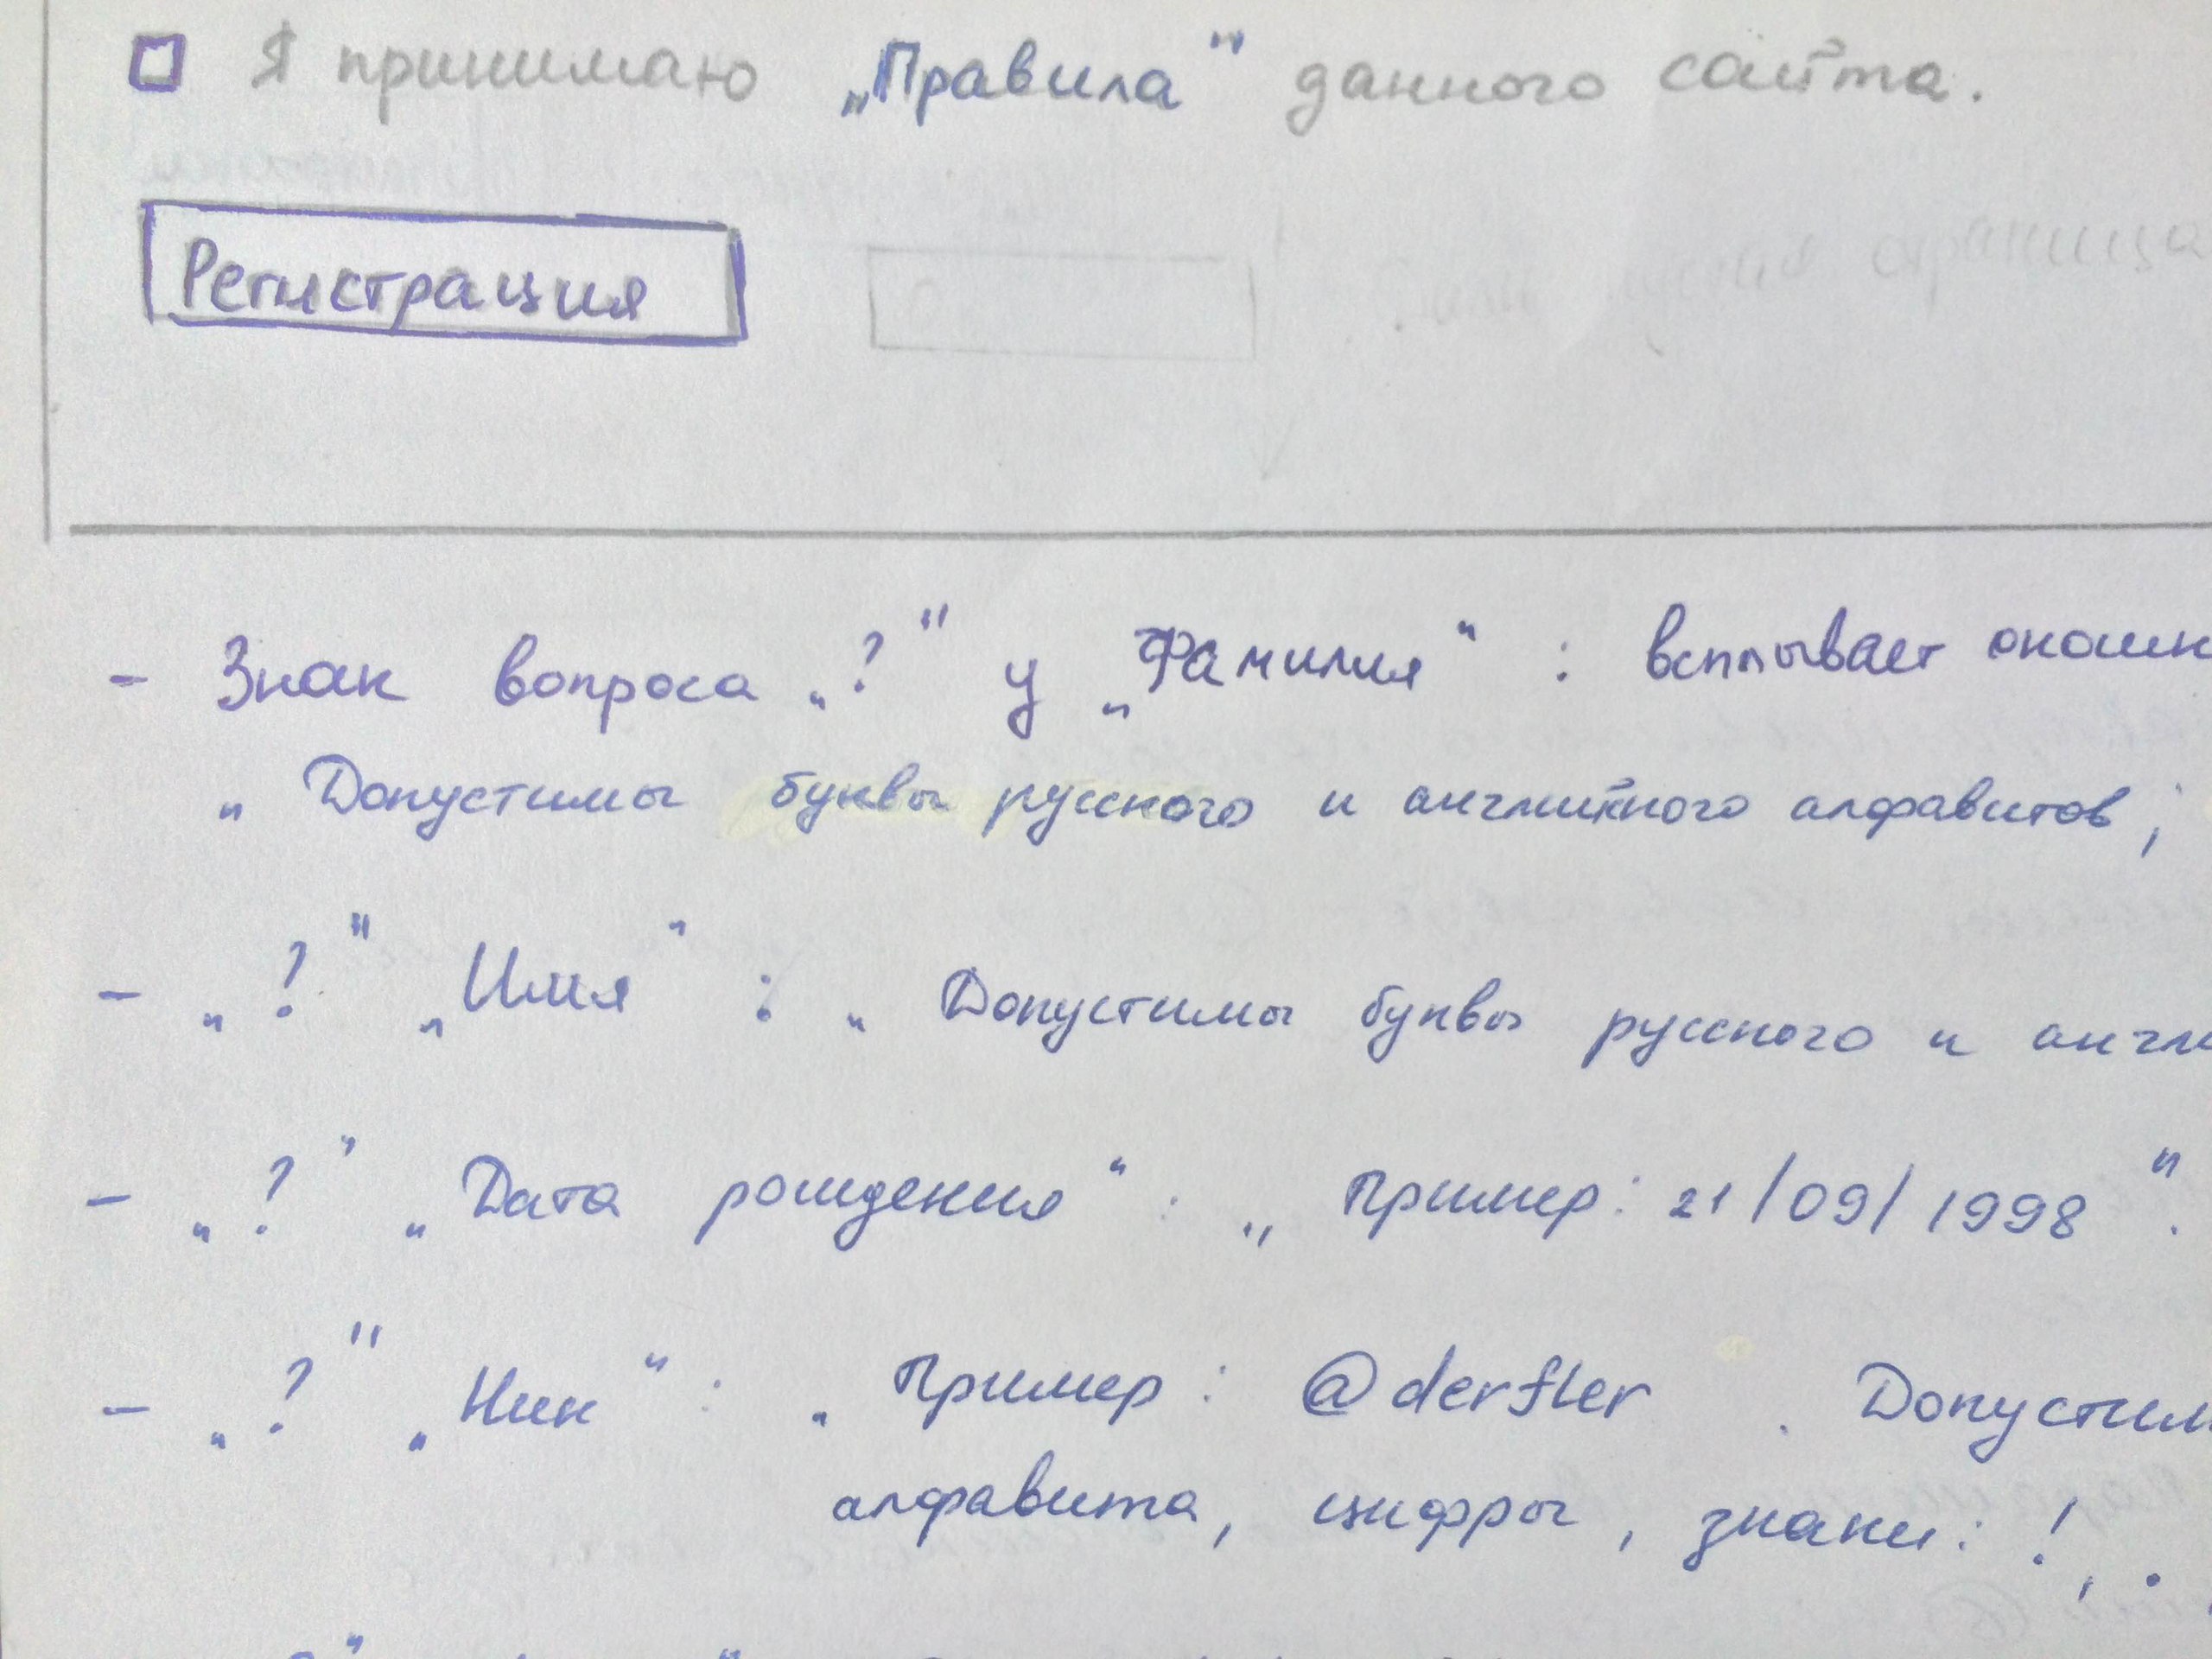 Я принимаю „Правила" данного сайта.
Регистрация
- Знак вопроса „?" у „Фамилия" : всплывает окошк
„Допустимы буквы русского и английского алфавитов;
- „?" „Имя" : „Допустимы буквы русского и англи
- „?" „Дата рождения" : „Пример: 21/09/1998".
- „?" „Ник" : „Пример: @derfler . Допустим
алфавита, цифры, знаки: ! , .